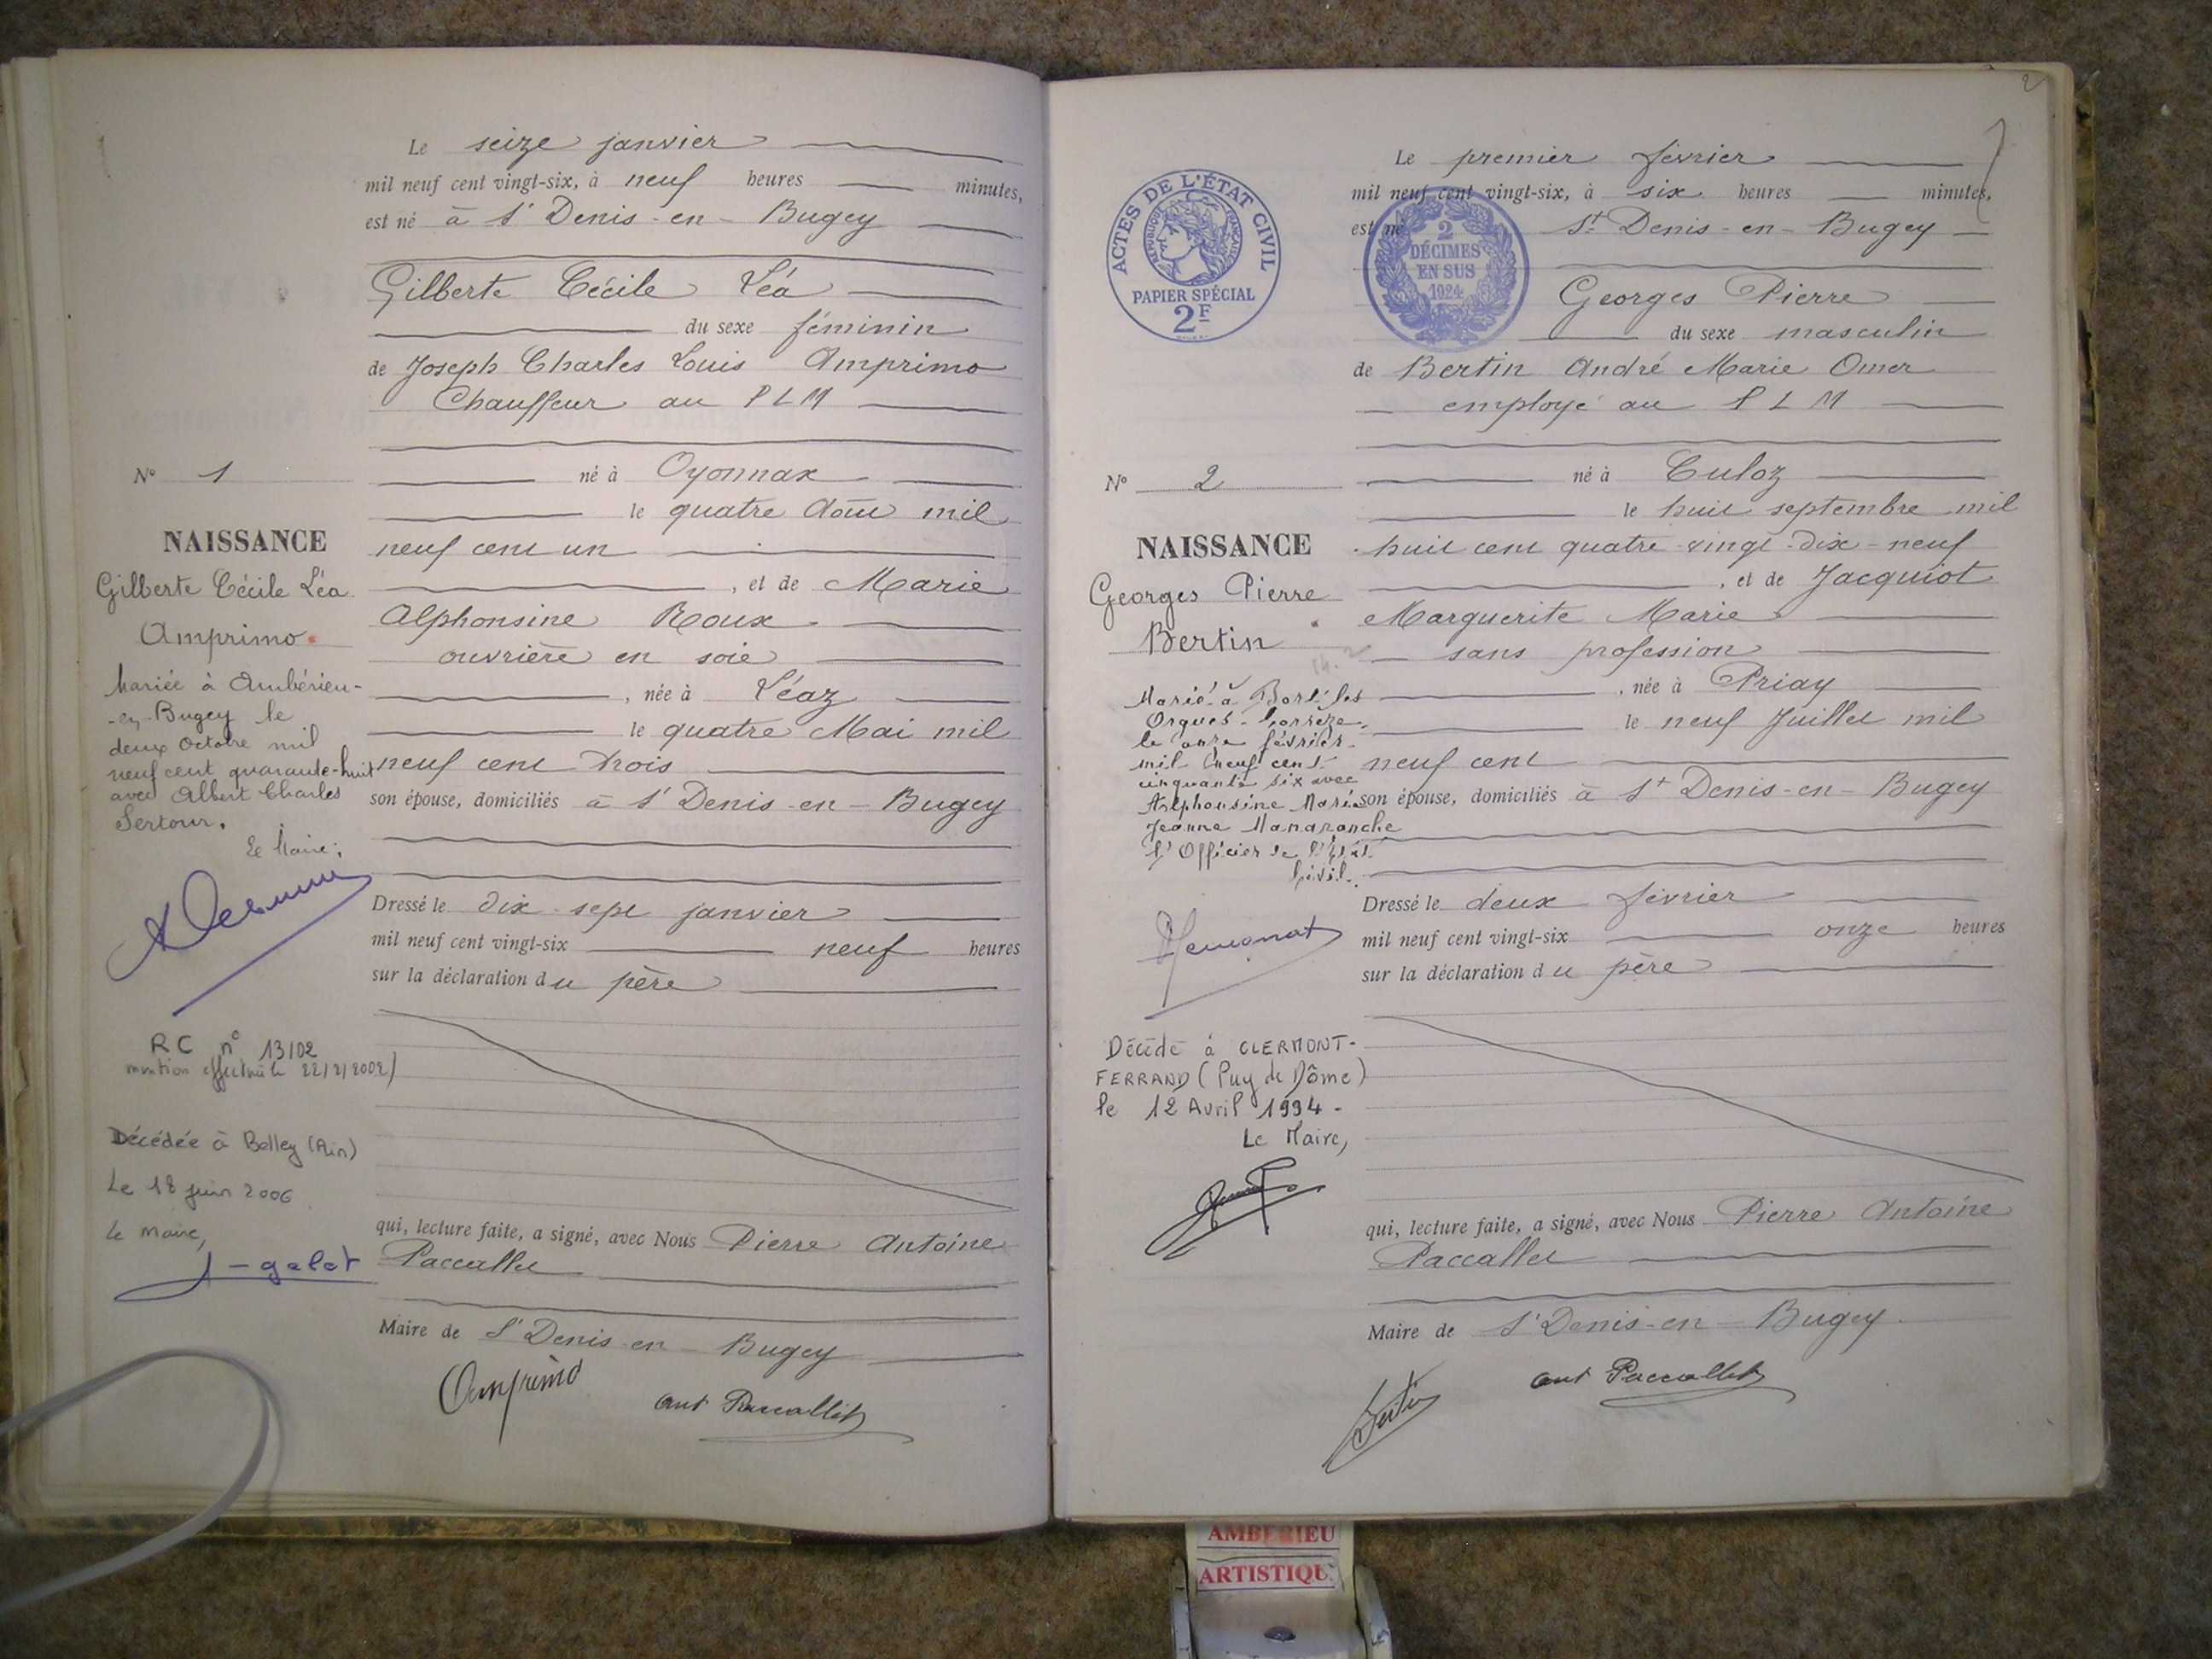 Le seize janvier
mil neuf cent vingt-six, à neuf heures minutes,
est né à St Denis-en-Bugey
Gilberte Cécile Léa
du sexe féminin
de Joseph Charles Louis Amprimo
Chauffeur au PLM
né à Oyonnax
le quatre Août mil
neuf cent un
, et de Marie
Alphonsine Roux
ouvrière en soie
, née à Léaz
le quatre Mai mil
neuf cent trois
son épouse, domiciliés à St Denis-en-Bugey
Dressé le dix-sept janvier
mil neuf cent vingt-six neuf heures
sur la déclaration du père
qui, lecture faite, a signé, avec Nous Pierre Antoine
Paccallet
Maire de St Denis-en-Bugey
Amprimo
Ant Paccallet
N° 1
NAISSANCE
Gilberte Cécile Léa
Amprimo
Mariée à Ambérieu-
-en-Bugey le
deux Octobre mil
neuf cent quarante-huit
avec Albert Charles
Sertour.
Le Maire:
RC n° 13/02
mention effectuée le 22/2/2002)
Décédée à Belley (Ain)
Le 18 juin 2006
Le Maire,
2
Le premier février
mil neuf cent vingt-six, à six heures minutes,
est né St Denis-en-Bugey
Georges Pierre
du sexe masculin
de Bertin André Marie Omer
employé au PLM
né à Culoz
le huit septembre mil
huit cent quatre-vingt-dix-neuf
, et de Jacquiot
Marguerite Marie
sans profession
, née à Priay
le neuf Juillet mil
neuf cent
son épouse, domiciliés à St Denis-en-Bugey
Dressé le deux février
mil neuf cent vingt-six onze heures
sur la déclaration du père
qui, lecture faite, a signé, avec Nous Pierre Antoine
Paccallet
Maire de St Denis-en-Bugey
Bertin
Ant Paccallet
ACTES DE L'ÉTAT CIVIL
RÉPUBLIQUE FRANÇAISE
PAPIER SPÉCIAL
2F
2
DÉCIMES
EN SUS
1924
N° 2
NAISSANCE
Georges Pierre
Bertin
Marié à Bort-les
Orgues - Corrèze
le onze février
mil neuf cent
cinquante six avec
Alphonsine Marie
Jeanne Manaranche
L'Officier de l'État
Civil.
Décédé à CLERMONT-
FERRAND (Puy de Dôme)
le 12 Avril 1994 -
Le Maire,
AMBERIEU
ARTISTIQU